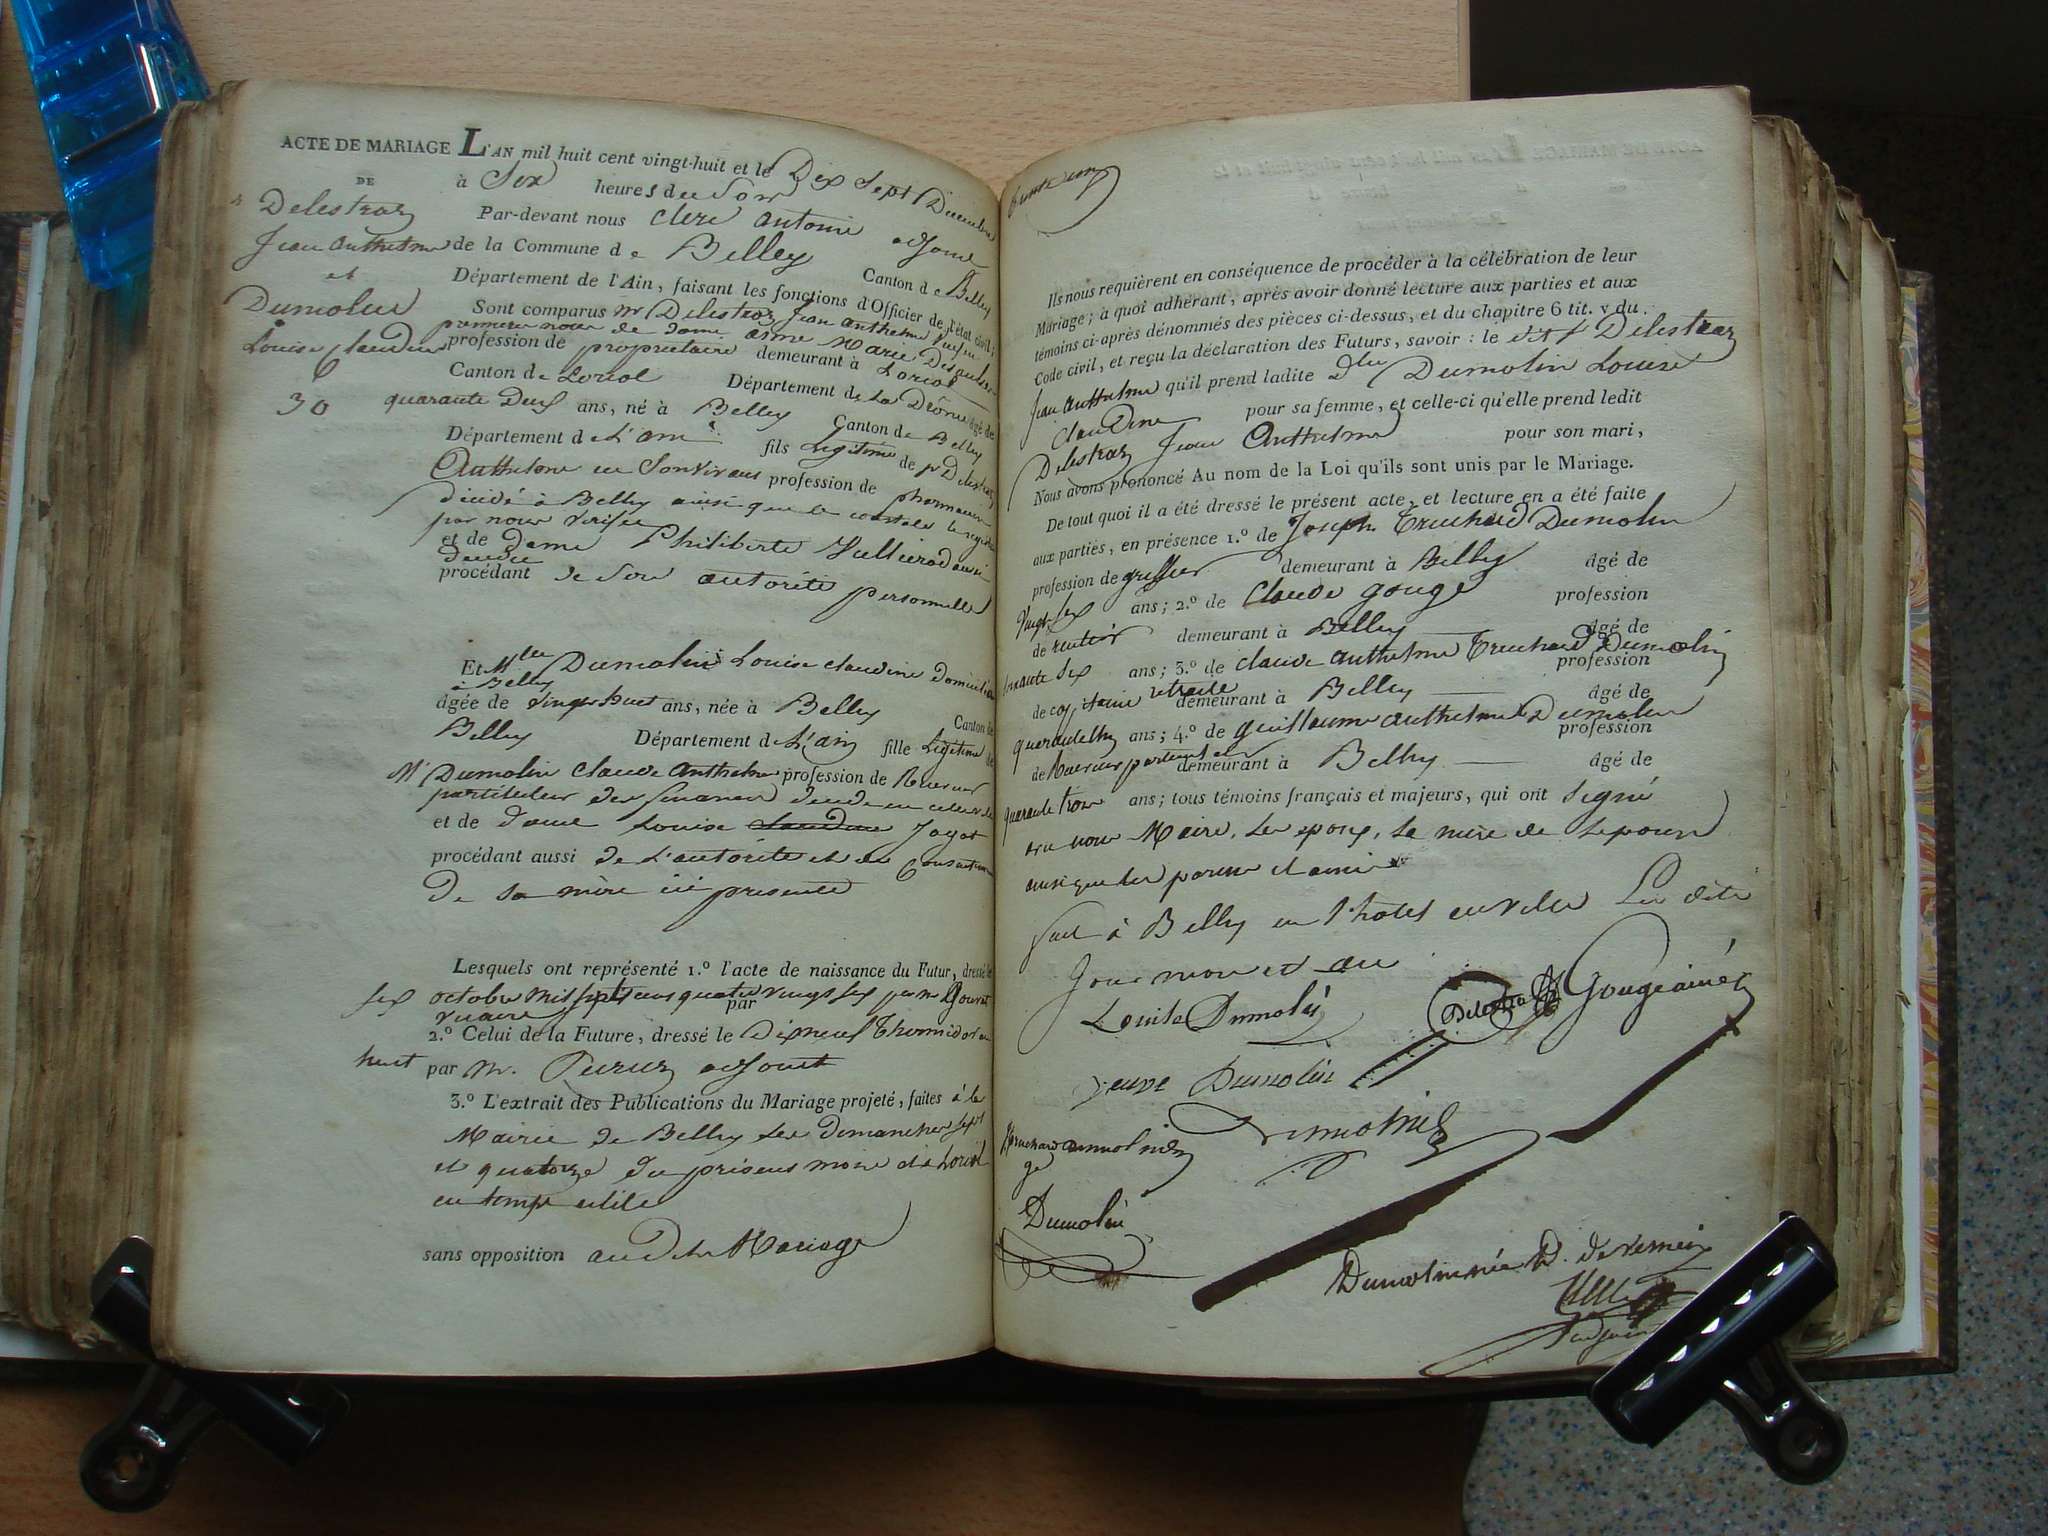 ACTE DE MARIAGE L'AN mil huit cent vingt-huit et le Dix Sept Decembre
DE
à Six heures du Soir
Delestraz
Par-devant nous Clerc antoine adjoint
Jean anthelme
de la Commune de Belley Canton de Belley
et
Département de l'Ain, faisant les fonctions d'Officier de l'état civil;
Dumolin
Sont comparus mr Delestraz Jean anthelme
de dame anne Marie
Louise Claudine
profession de propriétaire demeurant à Loriol
Canton de Loriol Département de La Drôme âgé de
30
quarante Deux ans, né à Belley Canton de Belley
Département de L'ain fils Légitime de Delestraz
Anthelme en Son vivant profession de pharmacien
décédé à Belley ainsi que le constate le registre
par nous vérifié
et de dame Philiberte
procédant de Son autorité personnelle
Et Mlle Dumolin Louise Claudine domiciliée
à Belley
âgée de vingt huit ans, née à Belley Canton de
Belley Département de L'ain fille Légitime de
Mr Dumolin Claude Anthelme profession de Receveur
particulier des finances
et de dame Louise Claudine Jayot
procédant aussi de L'autorité et du Consentement
De sa mère ici présente
Lesquels ont représenté 1.º l'acte de naissance du Futur, dressé le
six octobre mil sept cens quatre vingt six par
vicaire
2.º Celui de la Future, dressé le Dixneuf Thermidor an
huit par m. adjoint
3.º L'extrait des Publications du Mariage projeté, faites à la
Mairie de Belley les dimanches sept
et quatorze du présent mois et à Loriol
en temps utile
sans opposition au Dit Mariage
Ils nous requièrent en conséquence de procéder à la célébration de leur
Mariage; à quoi adhérant, après avoir donné lecture aux parties et aux
témoins ci-après dénommés des pièces ci-dessus, et du chapitre 6 tit. v du
Code civil, et reçu la déclaration des Futurs, savoir: le dit Sr Delestraz
Jean Anthelme qu'il prend ladite Dlle Dumolin Louise
Claudine pour sa femme, et celle-ci qu'elle prend ledit
Delestraz Jean Anthelme pour son mari,
Nous avons prononcé Au nom de la Loi qu'ils sont unis par le Mariage.
De tout quoi il a été dressé le présent acte, et lecture en a été faite
aux parties, en présence 1.º de Joseph Truchard Dumolin
profession de greffier demeurant à Belley âgé de
vingt six ans; 2.º de Claude gouge profession
de rentier demeurant à Belley âgé de
ans; 3.º de Claude anthelme Truchard Dumolin profession
de capitaine retraité demeurant à Belley âgé de
ans; 4.º de guillaume anthelme Dumolin profession
de demeurant à Belley âgé de
quarante trois ans; tous témoins français et majeurs, qui ont signé
avec nous Maire, les epoux, la mère de lepouse
ainsi que les parens et amis
fait à Belley en l'hotel de ville Les dits
Jour mois et an
Louise Dumolin
Delestraz
Gouge ainé
veuve Dumolin
Dumolin
Truchard dumolin
Dumolin
Dumolin née D.
adjoint